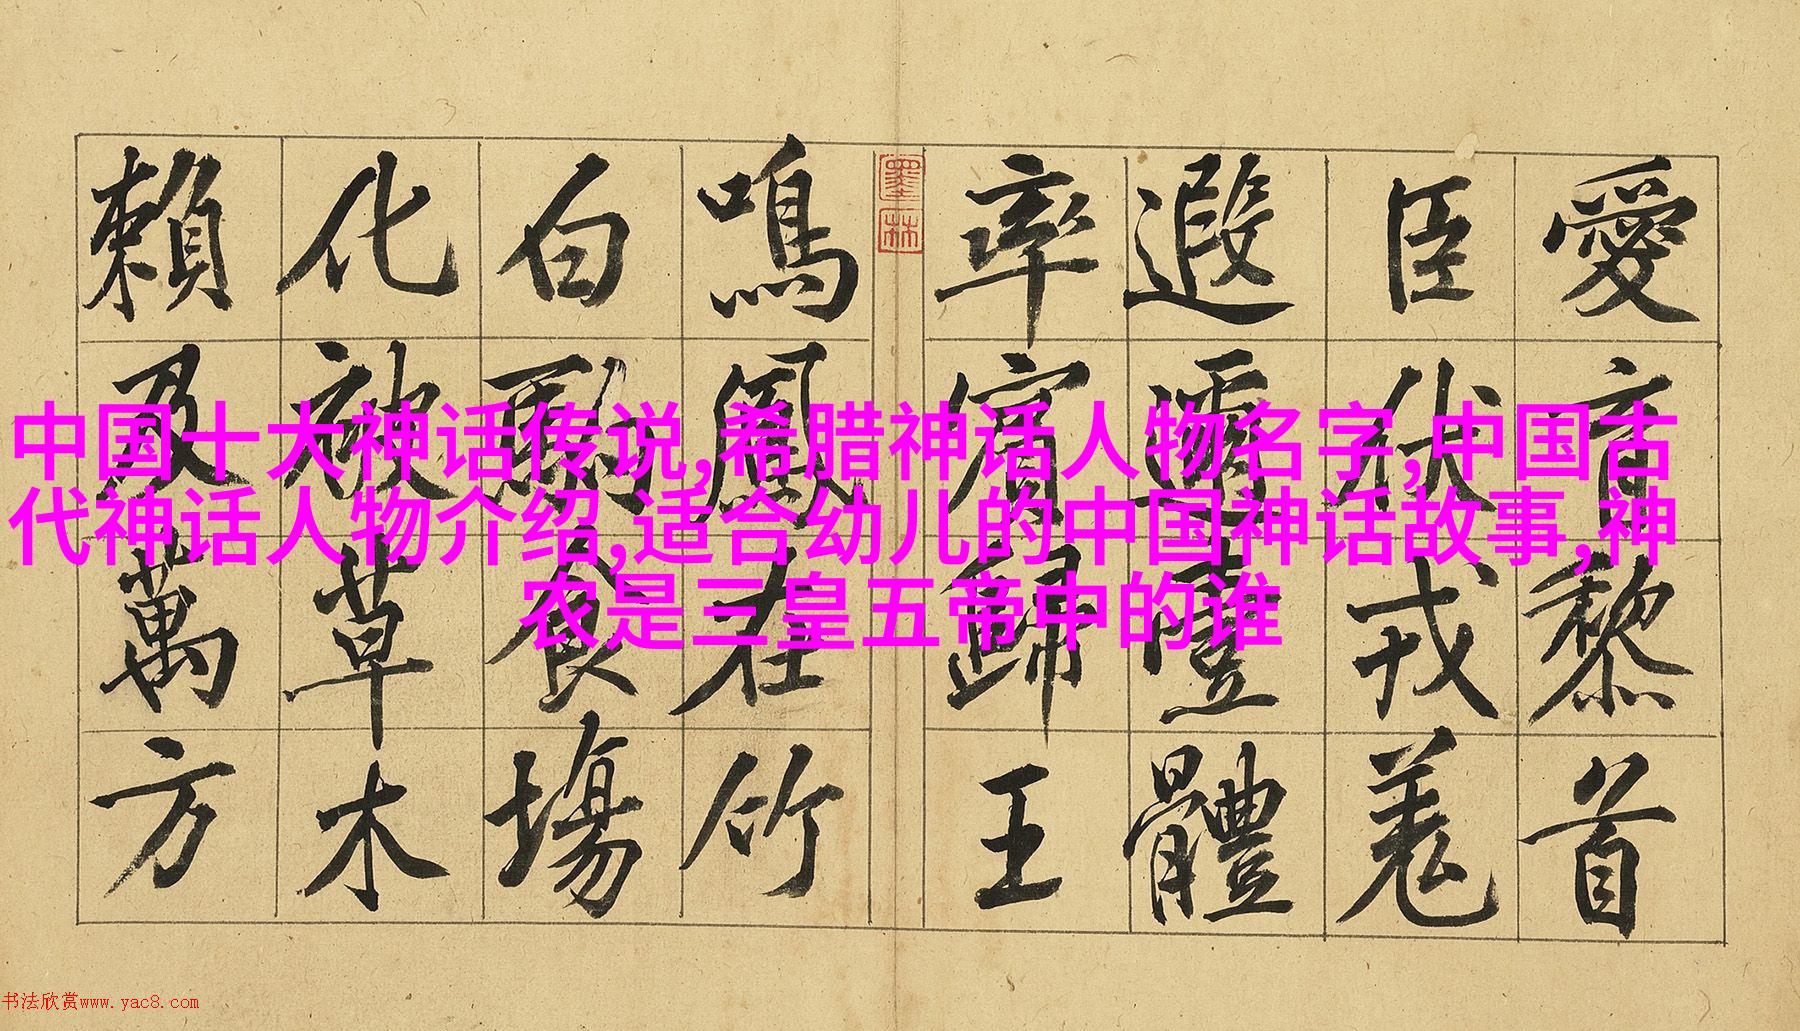 愛育黎首
臣伏戎羌
遐邇壹體
率賓歸王
墨林
鳴鳳在竹
白駒食場
化被草木
賴及萬方
中国十大神话传说,希腊神话人物名字,中国古
代神话人物介绍,适合幼儿的中国神话故事,神
农是三皇五帝中的谁
书法欣赏www.yac8.com